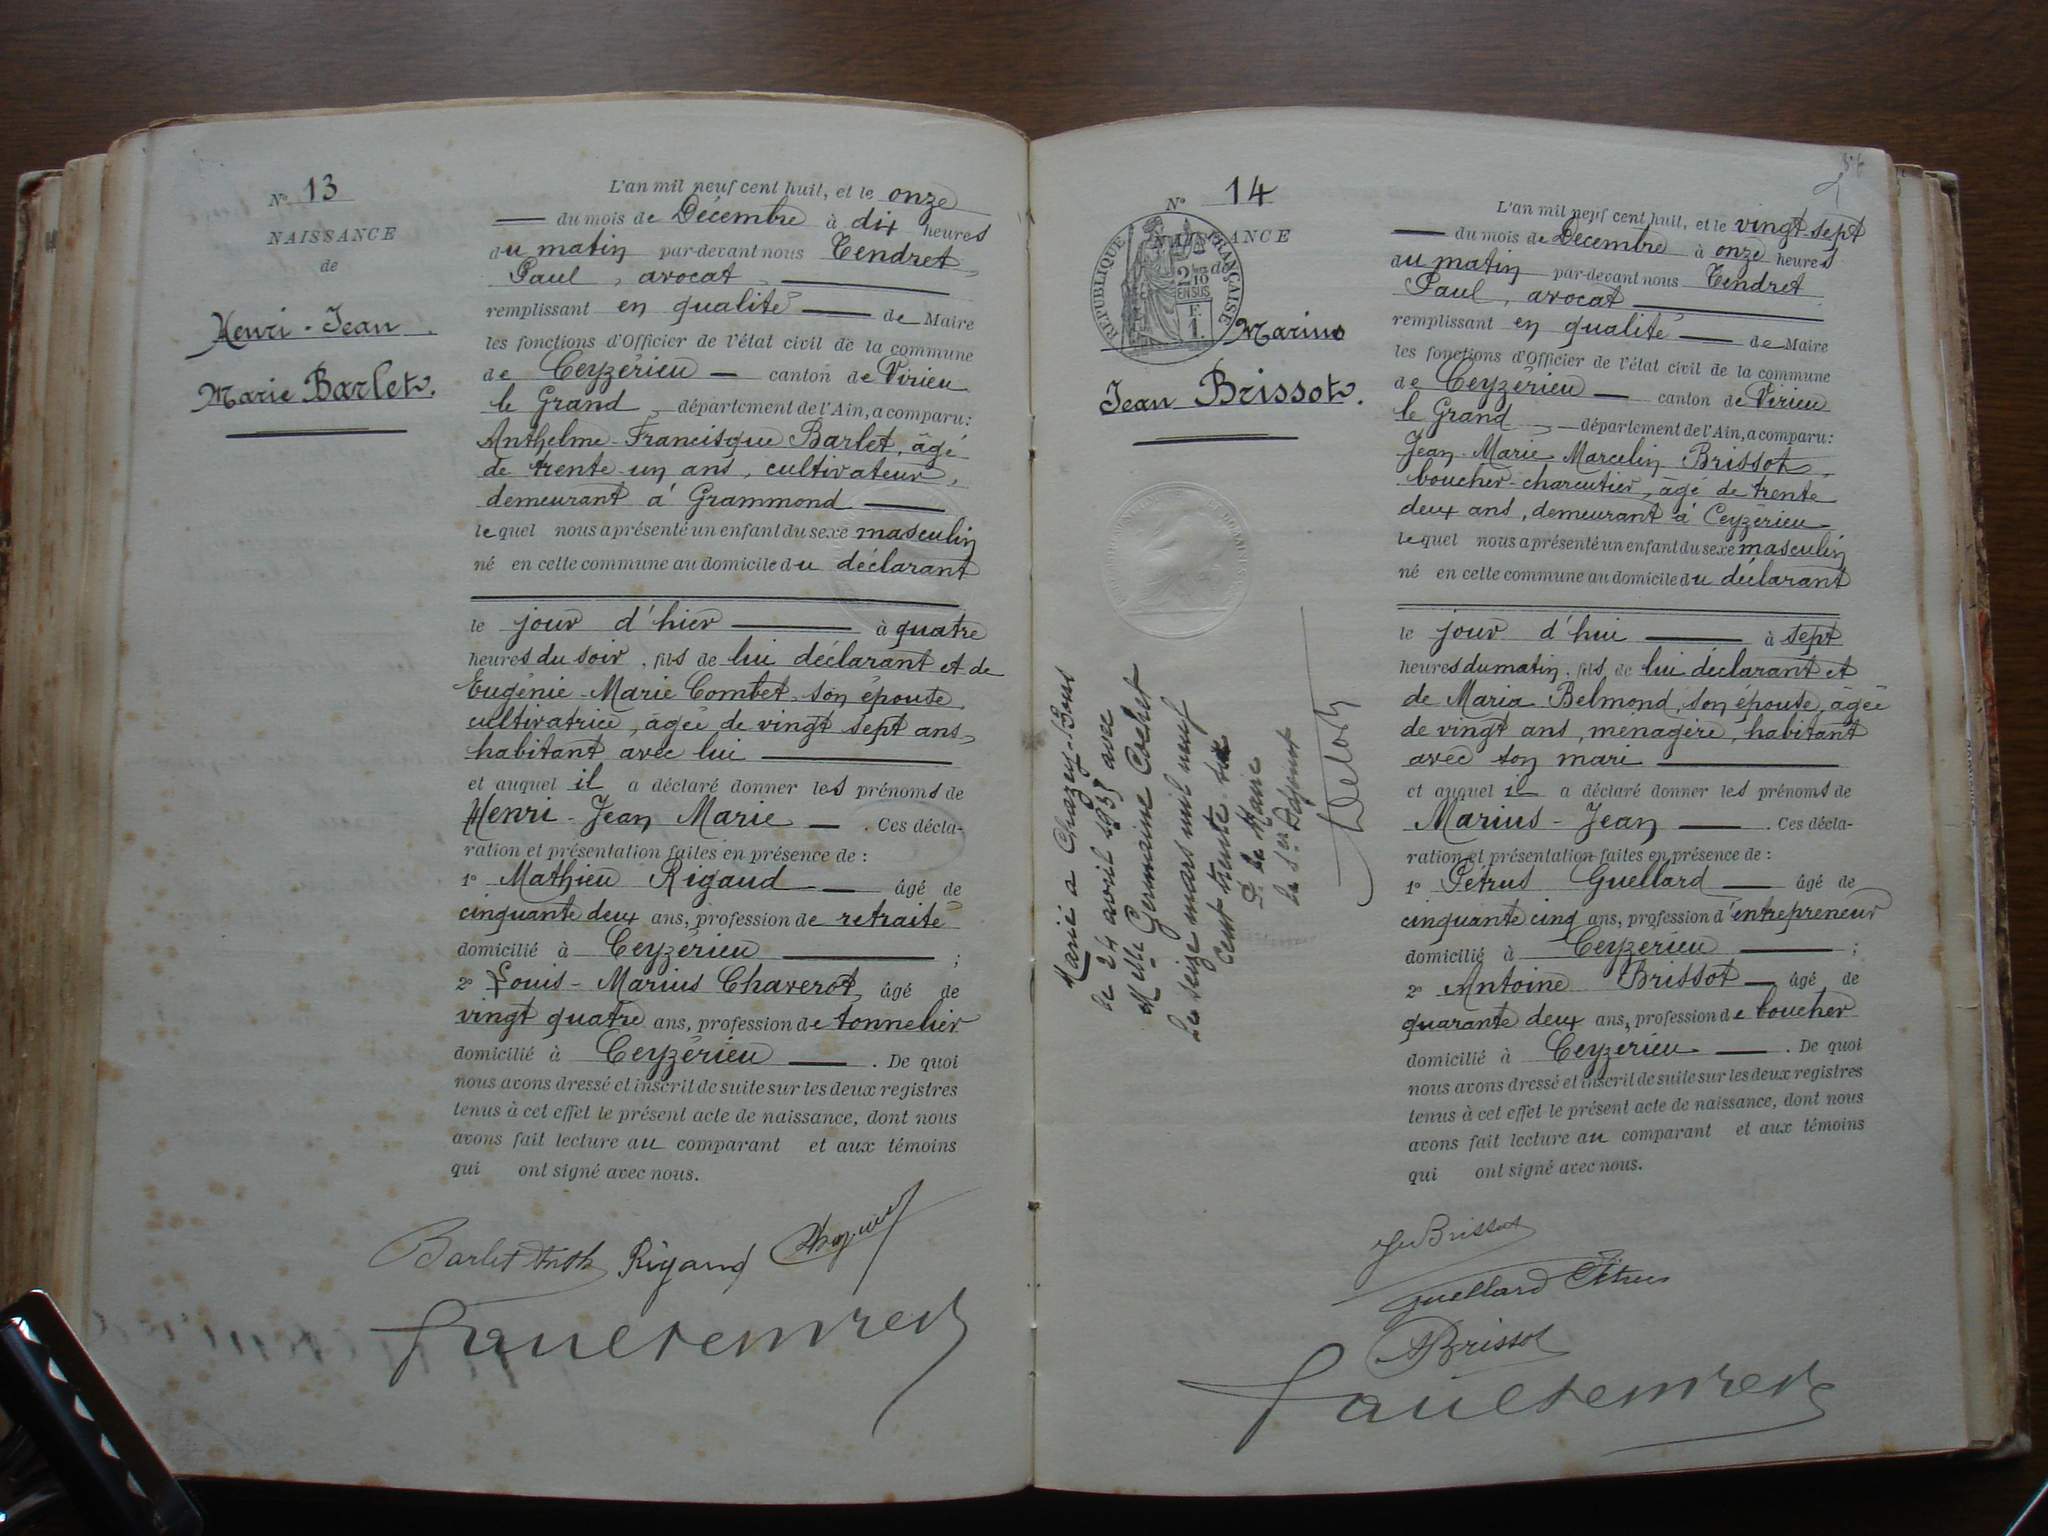 N° 13
NAISSANCE
de
Henri-Jean
Marie Barlet.
L'an mil neuf cent huit, et le onze
du mois de Décembre à dix heures
du matin par-devant nous Tendret
Paul, avocat,
remplissant en qualité de Maire
les fonctions d'Officier de l'état civil de la commune
de Ceyzérieu canton de Virieu
le Grand, département de l'Ain, a comparu:
Anthelme-Francisque Barlet, âgé
de trente-un ans, cultivateur,
demeurant à Grammond
lequel nous a présenté un enfant du sexe masculin
né en cette commune au domicile du déclarant
le jour d'hier à quatre
heures du soir, fils de lui déclarant et de
Eugénie-Marie Combet, son épouse,
cultivatrice, âgée de vingt sept ans,
habitant avec lui
et auquel il a déclaré donner les prénoms de
Henri-Jean Marie. Ces décla-
ration et présentation faites en présence de:
1° Mathieu Rigaud âgé de
cinquante deux ans, profession de retraité
domicilié à Ceyzérieu ;
2° Louis-Marius Chaverot, âgé de
vingt quatre ans, profession de tonnelier
domicilié à Ceyzérieu. De quoi
nous avons dressé et inscrit de suite sur les deux registres
tenus à cet effet le présent acte de naissance, dont nous
avons fait lecture au comparant et aux témoins
qui ont signé avec nous.
Barlet Anth Rigaud
Paul Tendret
N° 14
NAISSANCE
de
RÉPUBLIQUE FRANÇAISE
2/10
EN SUS
F.
1.
Marius
Jean Brissot.
Marié à Chazey-Bons
le 24 avril 1935 avec
Melle Germaine Cochet
Le seize mars mil neuf
cent trente six
P. le Maire
Le Sre Défumt
L'an mil neuf cent huit, et le vingt sept
du mois de Décembre à onze heures
du matin par-devant nous Tendret
Paul, avocat
remplissant en qualité de Maire
les fonctions d'Officier de l'état civil de la commune
de Ceyzérieu canton de Virieu
le Grand, département de l'Ain, a comparu:
Jean-Marie Marcelin Brissot,
boucher-charcutier, âgé de trente
deux ans, demeurant à Ceyzérieu
lequel nous a présenté un enfant du sexe masculin
né en cette commune au domicile du déclarant
le jour d'hui à sept
heures du matin, fils de lui déclarant et
de Maria Belmond, son épouse, âgée
de vingt ans, ménagère, habitant
avec son mari
et auquel il a déclaré donner les prénoms de
Marius-Jean. Ces décla-
ration et présentation faites en présence de:
1° Pétrus Guellard âgé de
cinquante cinq ans, profession d'entrepreneur
domicilié à Ceyzérieu ;
2° Antoine Brissot âgé de
quarante deux ans, profession de boucher
domicilié à Ceyzerieu. De quoi
nous avons dressé et inscrit de suite sur les deux registres
tenus à cet effet le présent acte de naissance, dont nous
avons fait lecture au comparant et aux témoins
qui ont signé avec nous.
Brissot
Guellard Pétrus
A Brissot
Paul Tendret